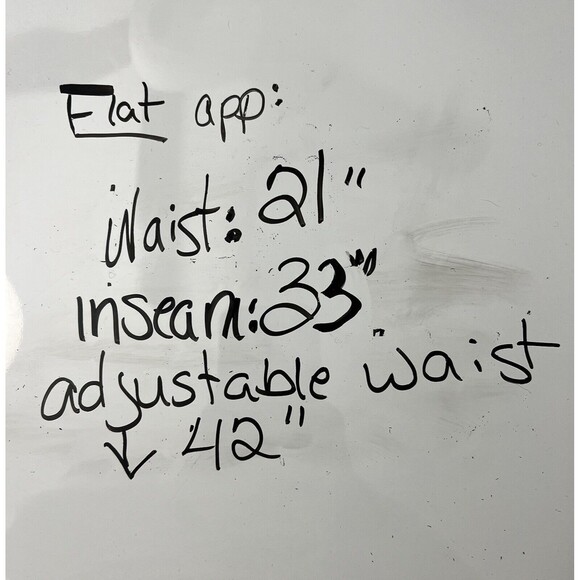 Flat app:
Waist: 21"
inseam: 33"
adjustable waist
↓ 42"